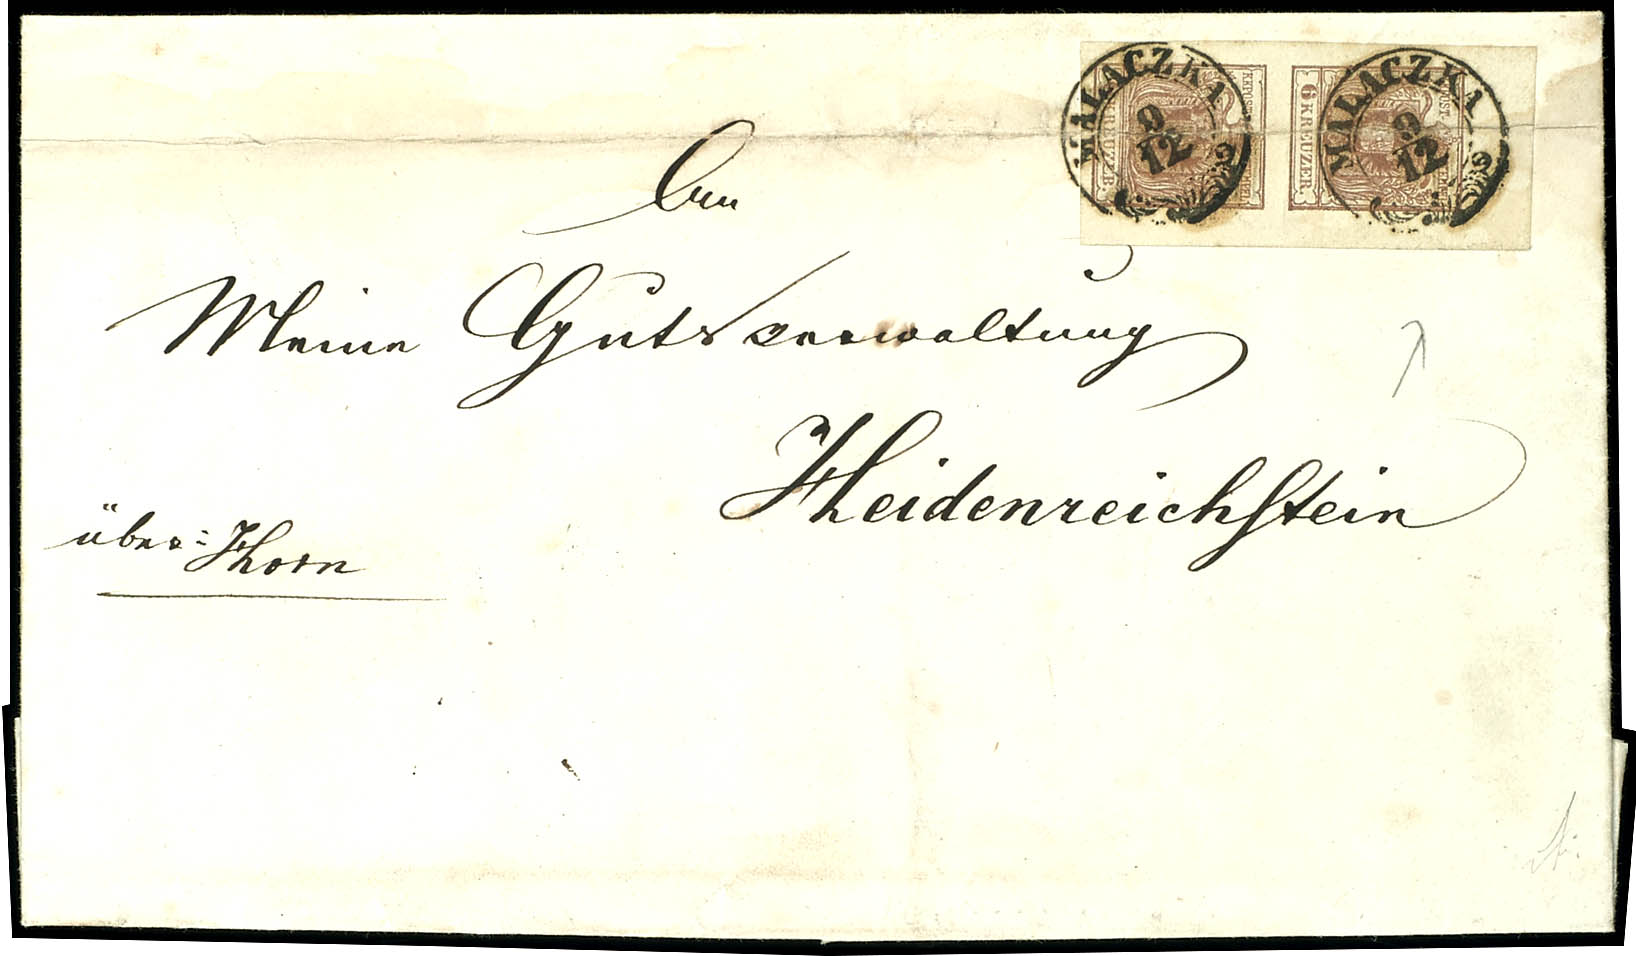 MALACZKA
9
12
MALACZKA
9
12
6 KREUZER
An
Meine Gutsverwaltung
Heidenreichstein
über: Thorn